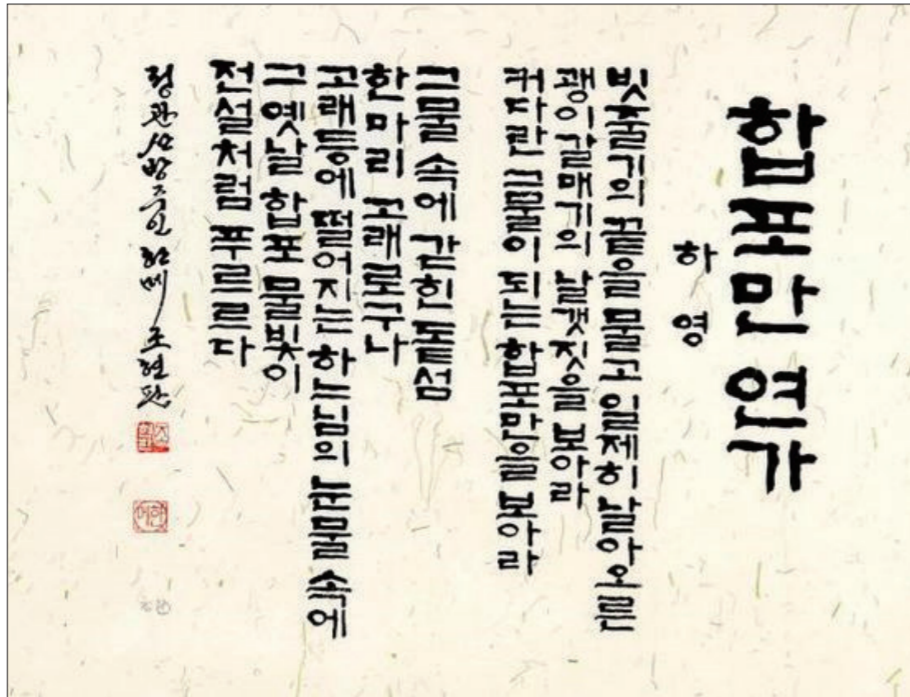 합포만 연가
하영
빗줄기의 끝을 물고 일제히 날아오른
괭이갈매기의 날갯짓을 보아라
커다란 그물이 되는 합포만을 보아라
그물 속에 갇힌 돝섬
한 마리 고래로구나
고래등에 떨어지는 하느님의 눈물 속에
그 옛날 합포 물빛이
전설처럼 푸르르다
조현판